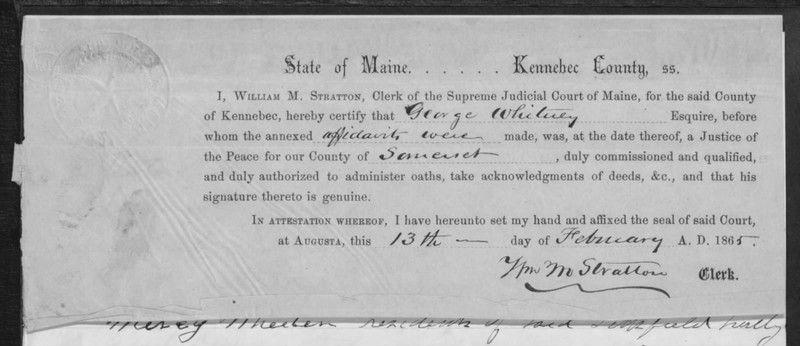 State of Maine. . . . . . . Kennebec County, ss.
I, WILLIAM M. STRATTON, Clerk of the Supreme Judicial Court of Maine, for the said County
of Kennebec, hereby certify that George Whitney Esquire, before
whom the annexed affidavits were made, was, at the date thereof, a Justice of
the Peace for our County of Somerset , duly commissioned and qualified,
and duly authorized to administer oaths, take acknowledgments of deeds, &c., and that his
signature thereto is genuine.
IN ATTESTATION WHEREOF, I have hereunto set my hand and affixed the seal of said Court,
at AUGUSTA, this 13th — day of February A. D. 1865.
Wm M Stratton Clerk.
residents of said